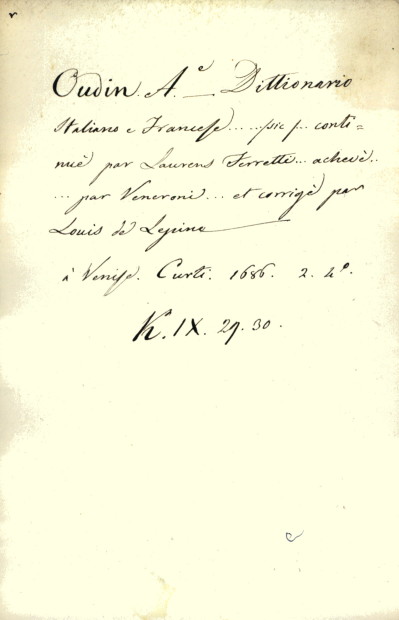 Oudin. A.e — Dittionario
Italiano e Francese .... (sic) .... conti=
nué par Laurens Ferretti... achevé..
... par Veneroni... et corrigé par
Louis de Lepine
à Venise. Curti. 1686. 2. 4°.
K.a IX. 29. 30.